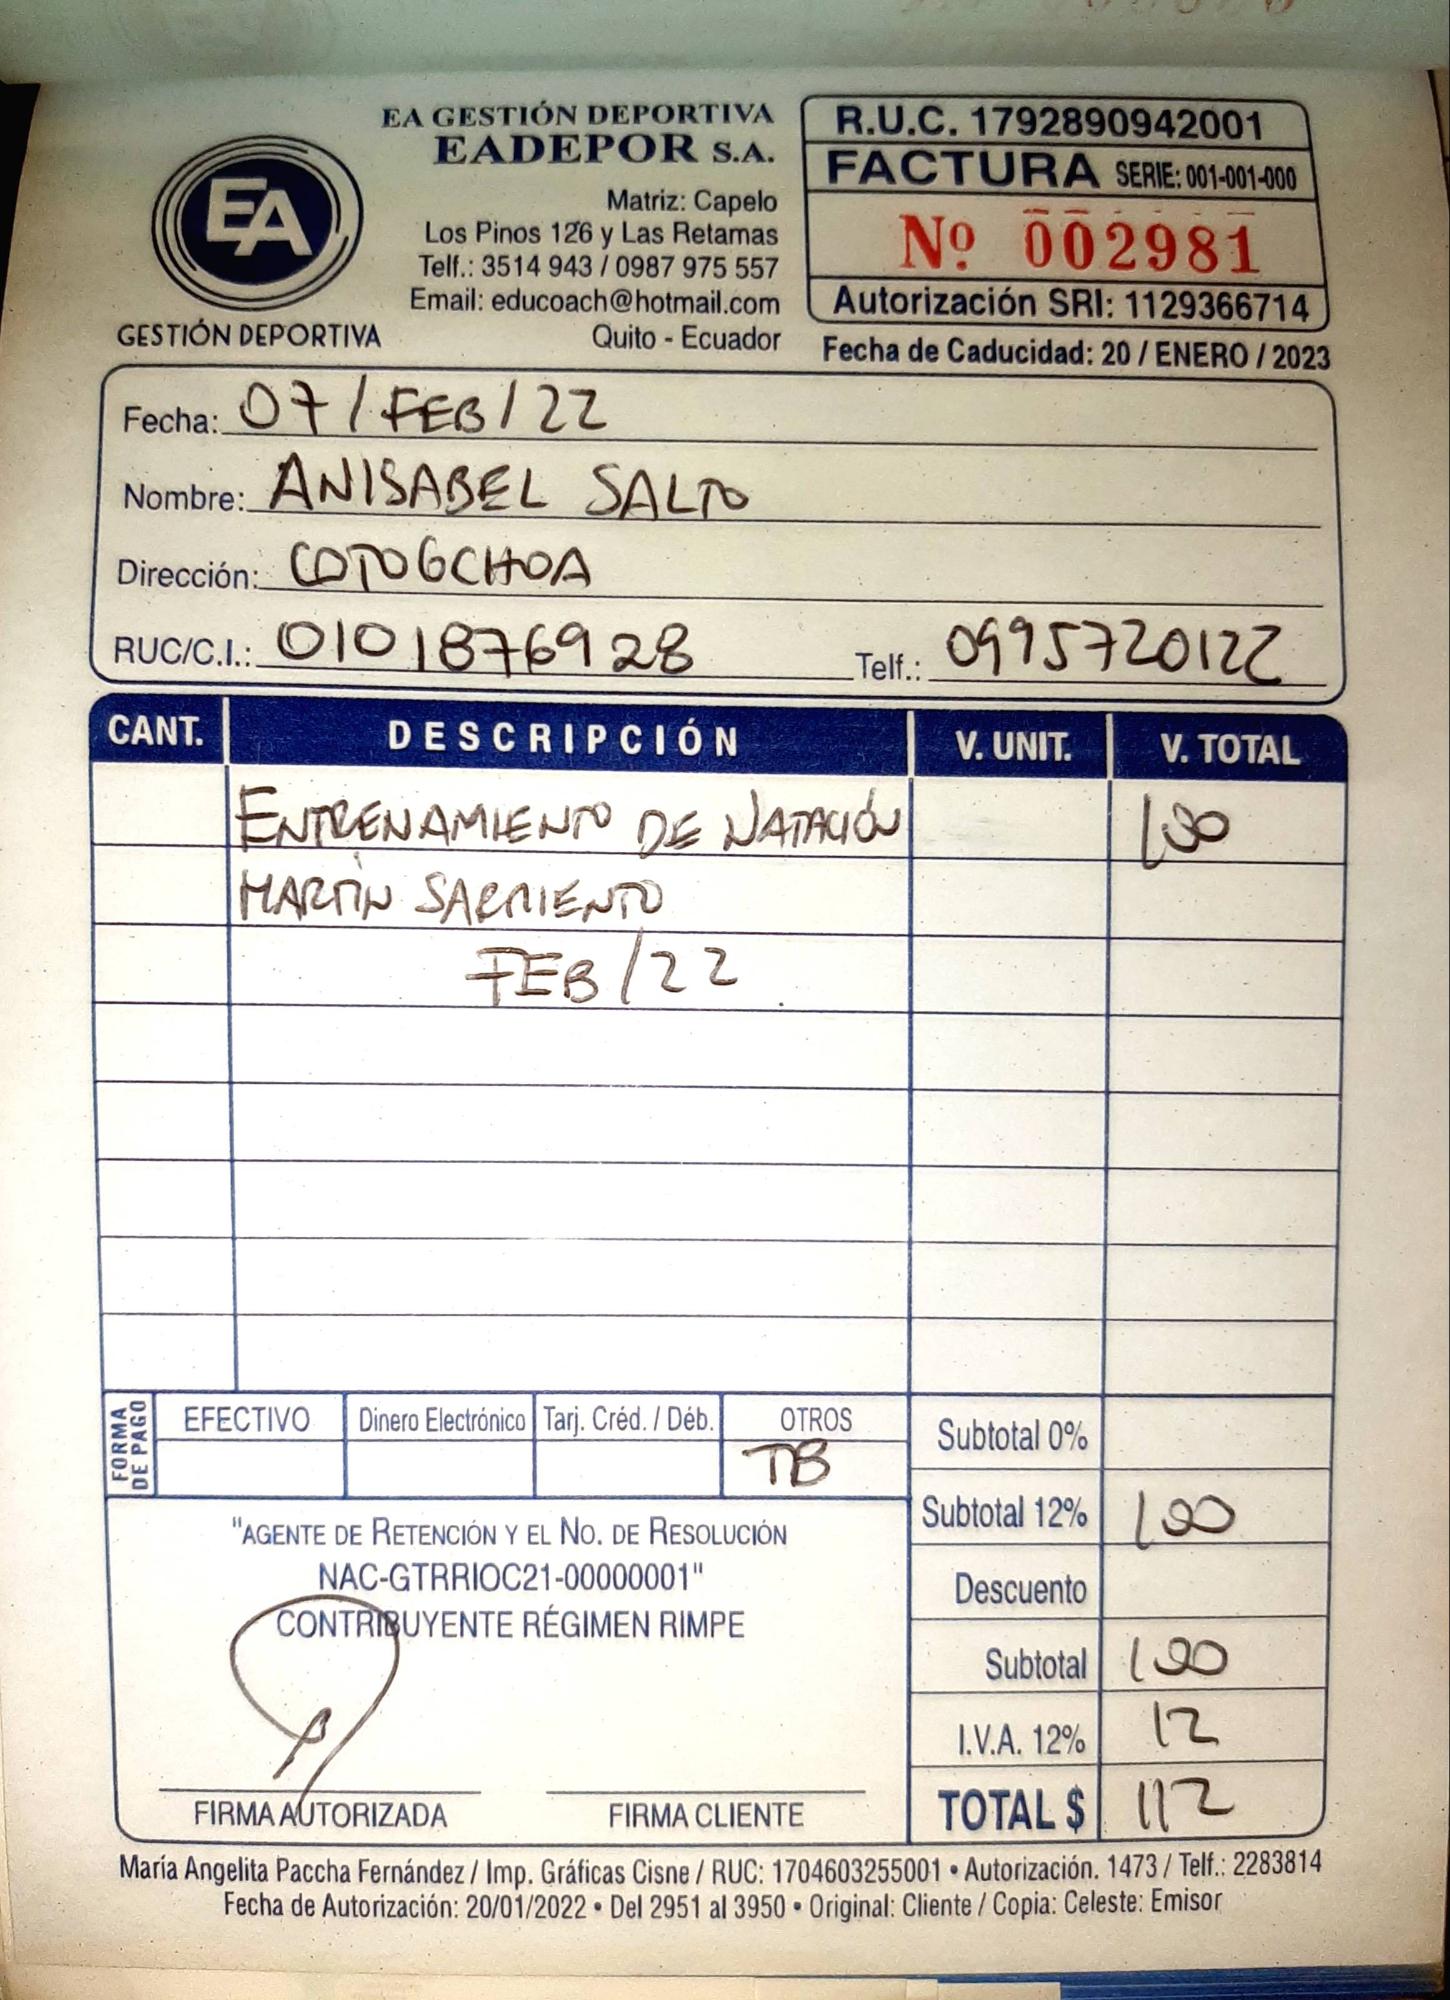 EA GESTIÓN DEPORTIVA
EADEPOR S.A.
EA
GESTIÓN DEPORTIVA
Matriz: Capelo
Los Pinos 126 y Las Retamas
Telf.: 3514 943 / 0987 975 557
Email: educoach@hotmail.com
Quito - Ecuador
R.U.C. 1792890942001
FACTURA SERIE: 001-001-000
Nº 002981
Autorización SRI: 1129366714
Fecha de Caducidad: 20 / ENERO / 2023
Fecha: 07 / FEB / 22
Nombre: ANISABEL SALTO
Dirección: COTOGCHOA
RUC/C.I.: 0101876928 Telf.: 0995720122
CANT. DESCRIPCIÓN V. UNIT. V. TOTAL
ENTRENAMIENTO DE NATACIÓN 100
MARTIN SARMIENTO
FEB / 22
FORMA DE PAGO
EFECTIVO Dinero Electrónico Tarj. Créd. / Déb. OTROS
TB
Subtotal 0%
Subtotal 12% 100
Descuento
Subtotal 100
I.V.A. 12% 12
TOTAL $ 112
"AGENTE DE RETENCIÓN Y EL NO. DE RESOLUCIÓN
NAC-GTRRIOC21-00000001"
CONTRIBUYENTE RÉGIMEN RIMPE
FIRMA AUTORIZADA FIRMA CLIENTE
María Angelita Paccha Fernández / Imp. Gráficas Cisne / RUC: 1704603255001 • Autorización. 1473 / Telf.: 2283814
Fecha de Autorización: 20/01/2022 • Del 2951 al 3950 • Original: Cliente / Copia: Celeste: Emisor